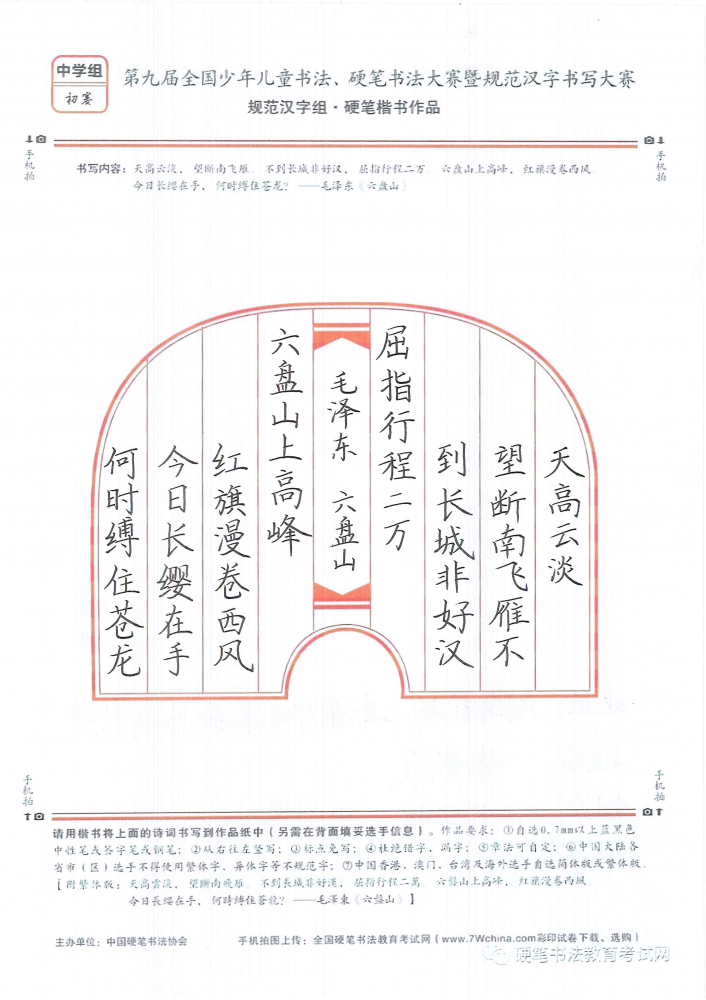 中学组
初赛
第九届全国少年儿童书法、硬笔书法大赛暨规范汉字书写大赛
规范汉字组·硬笔楷书作品
手机拍
手机拍
书写内容：天高云淡，望断南飞雁。不到长城非好汉，屈指行程二万。六盘山上高峰，红旗漫卷西风。
今日长缨在手，何时缚住苍龙？——毛泽东《六盘山》
天高云淡
望断南飞雁不
到长城非好汉
屈指行程二万
毛泽东 六盘山
六盘山上高峰
红旗漫卷西风
今日长缨在手
何时缚住苍龙
手机拍
手机拍
请用楷书将上面的诗词书写到作品纸中（另需在背面填妥选手信息）。作品要求：①自选0.7mm以上蓝黑色
中性笔或签字笔或钢笔；②从右往左竖写；③标点免写；④杜绝错字，漏字；⑤章法可自定；⑥中国大陆各
省市（区）选手不得使用繁体字、异体字等不规范字；⑦中国香港、澳门、台湾及海外选手自选简体版或繁体版。
【附繁体版：天高雲淡，望斷南飛雁。不到長城非好漢，屈指行程二萬。六盤山上高峰，紅旗漫卷西風。
今日長纓在手，何時縛住蒼龍？——毛澤東《六盤山》】
主办单位：中国硬笔书法协会
手机拍图上传：全国硬笔书法教育考试网（www.7Wchina.com彩印试卷下载、选购）
硬笔书法教育考试网